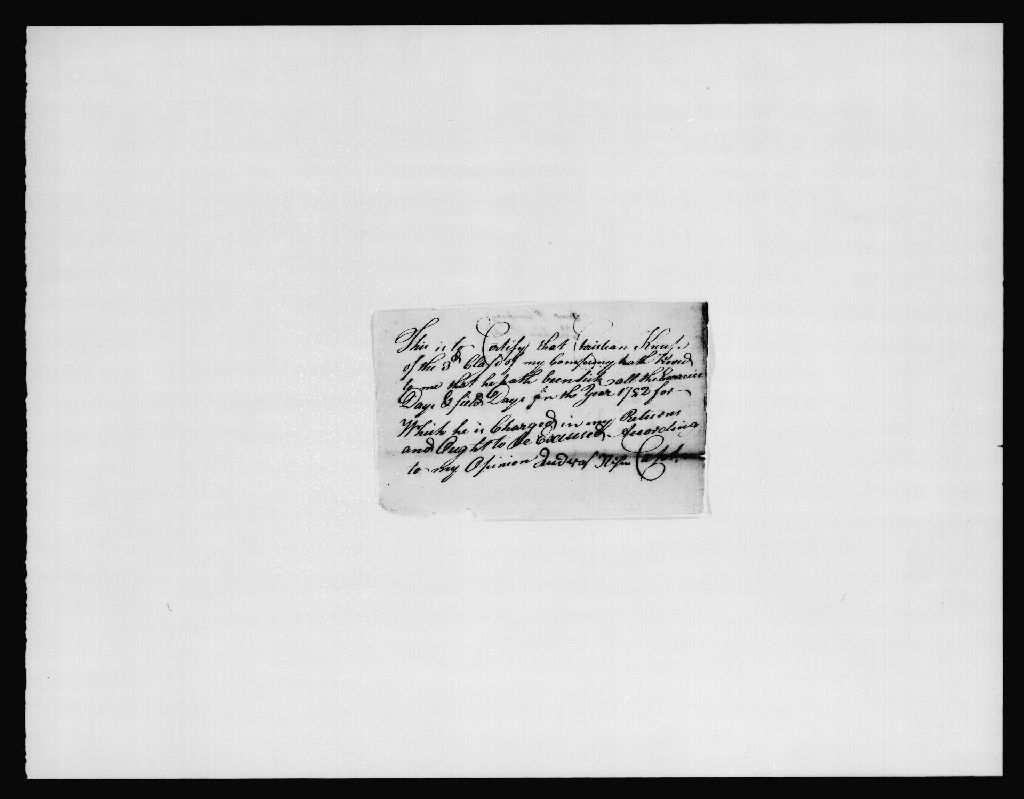 This is to Certify that Cristian Knuss
of the 3d Class of my Company hath Proved
to me that he hath been sick all the Exercise
Days & field Days in the Year 1782 for
Which he is Charged in my Returns
and Ought to be Excused According
to my Opinion Capt.